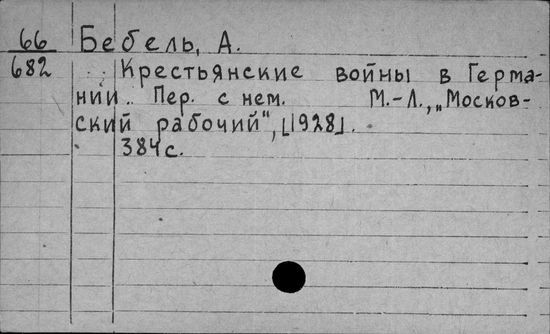 66 Бебель, А.
682 Крестьянские войны в Герма-
нии.. Пер. с нем. М.-Л., „Москов-
ский рабочий", [1928].
384 с.